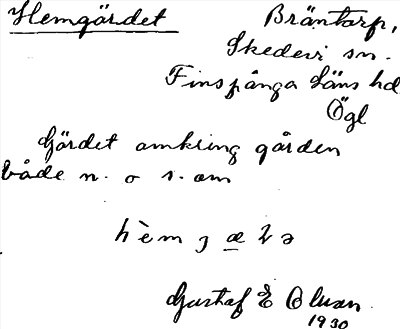 Hemgärdet Bräntorp,
Skedevi sn.
Finspånga Läns hd
Ögl
Gärdet omkring gården
både n. o s. om
Gustaf E Olsson
1930